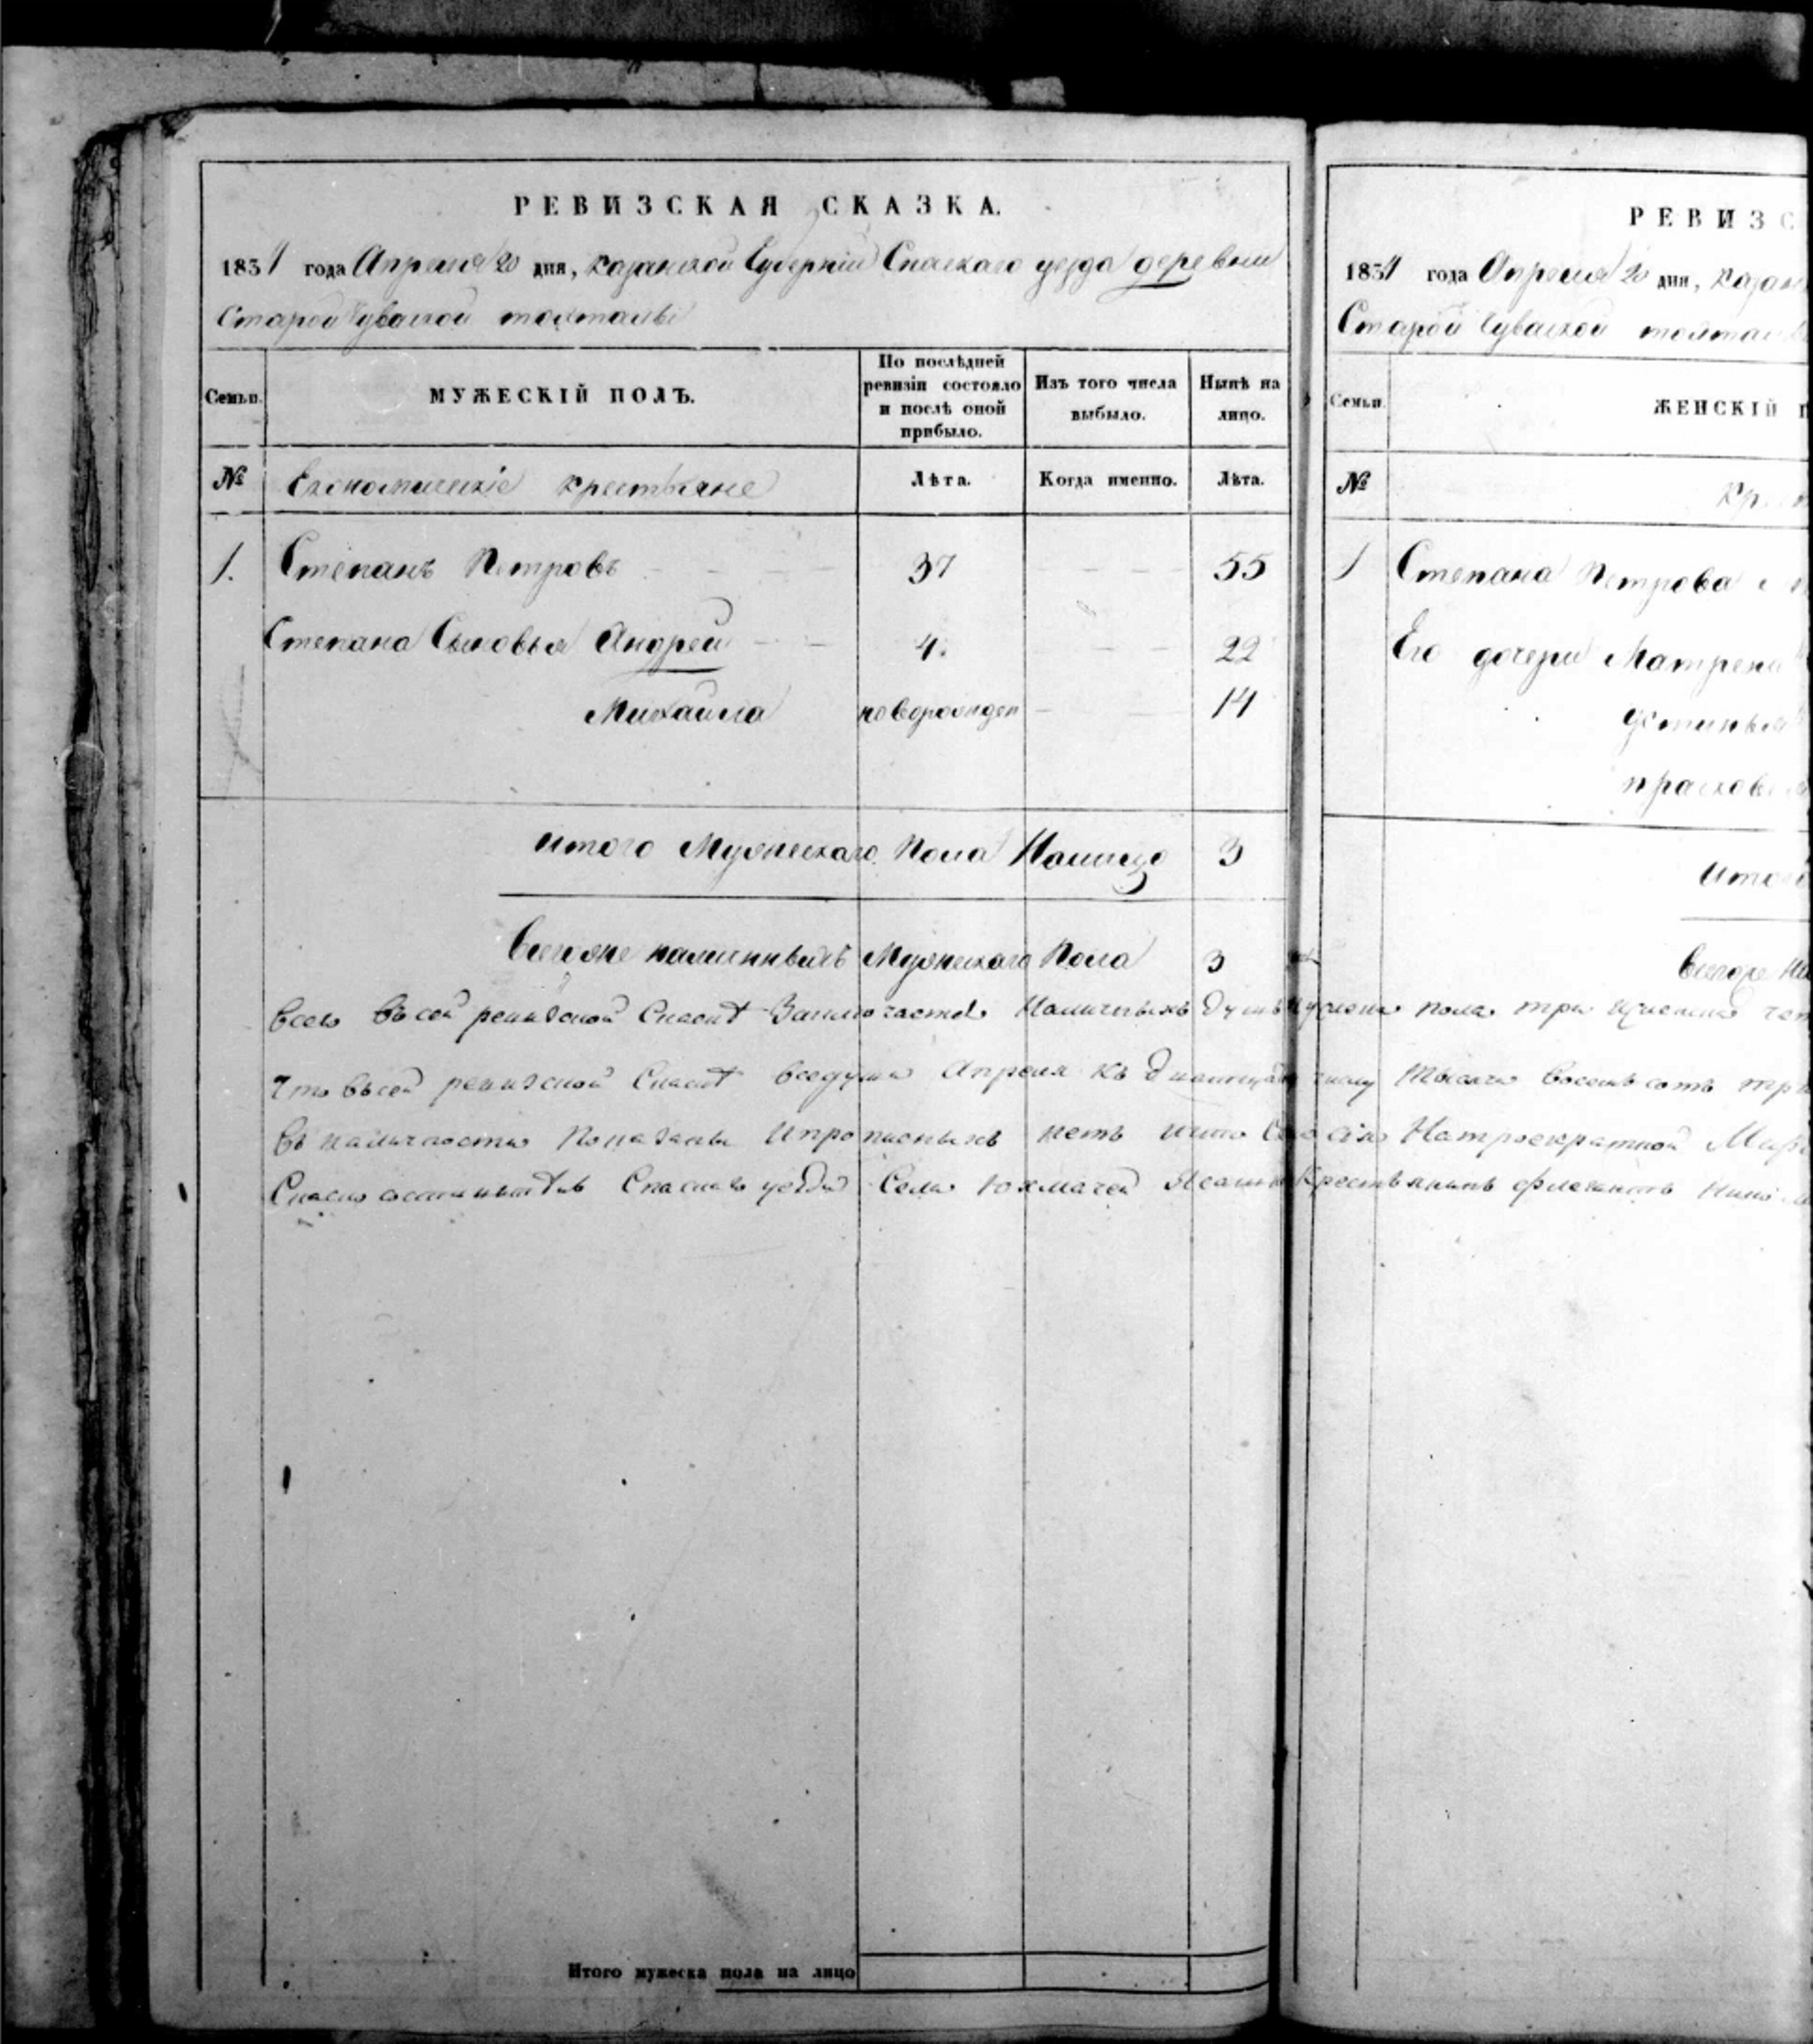 РЕВИЗСКАЯ СКАЗКА.
1834 года Апреля 20 дня, Казанской Губерніи Спаскаго уезда деревни
Старой Чуваской толталы
Семьи.
МУЖЕСКІЙ ПОЛЪ.
По послѣдней ревизіи состояло и послѣ оной прибыло.
Изъ того числа выбыло.
Нынѣ на лицо.
№ Економическіе крестьяне Лѣта. Когда именно. Лѣта.
1. Степанъ Петровъ 37 55
Степана Сыновья Андрей 4. 22
Михаила новорожден 14
итого Мужескаго Пола Налицо 3
Всегоже наличныхъ Мужескаго Пола 3
Всего Въ сей ревизской Сказкѣ Заключается Наличныхъ Душъ мужска пола три
Что Въсей ревизской Сказкѣ Вседуши Апреля Къ Дватцатому числу тысяча восемь сотъ
Въ наличности Показаны Ипрописныхъ нетъ ичто Натроекратной
Спаскаго уезда Села Юхмачей Ясашн Крестьянинъ
Итого мужеска пола на лицо
РЕВИЗС
1834 года Апреля 20 дня, Казан
Старой Чуваской
Семьи.
ЖЕНСКІЙ П
№
1 Степана Петрова
Его дочери Матрена
Устинья
Прасковья
Итого
Всегоже На